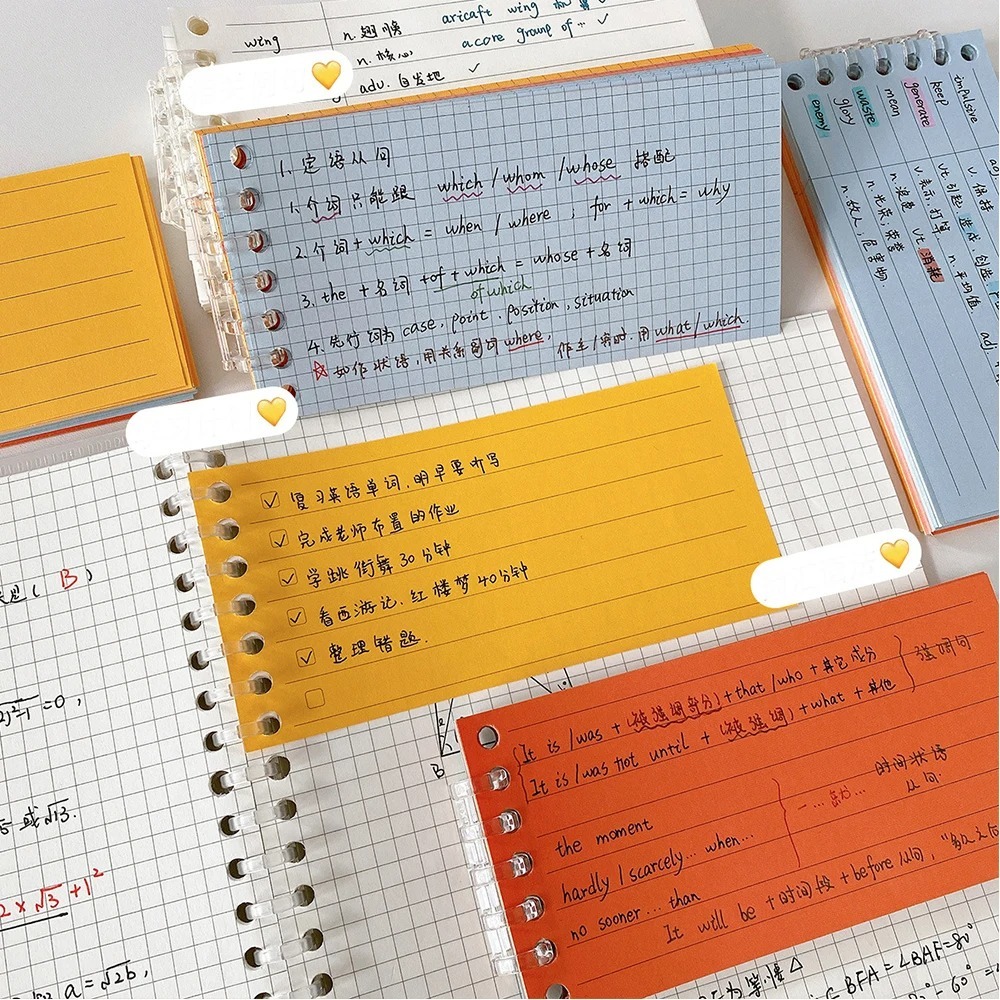 wing n.翅膀 aricaft wing
n.核心 a core group of… ✓
adv.自发地 ✓
1、定语从句
1、介词只能跟 which / whom / whose 搭配
2.介词+which = when / where ; for + which = why
3、the + 名词 +of + which = whose + 名词
of which
4、先行词为 case, point、position, situation
☆如作状语,用关系副词where, 作主/宾时,用what/which.
impulsive adj.
keep v.保持
generate vt.引起,造成,创造
mean v.表示,打算 n.平均值 adj.
waste n.浪费 vt.消耗
glory n.光荣,荣誉
enemy n.敌人,危害物
☑ 复习英语单词,明早要听写
☑ 完成老师布置的作业
☑ 学跳街舞30分钟
☑ 看西游记、红楼梦40分钟
☑ 整理错题.
It is /was + (被强调部分)+that /who + 其它成分 强调句
It is /was not until + (被强调)+what + 其他
时间状语
从句.
the moment 一…就…
hardly / scarcely… when…
no sooner… than
It will be + 时间段 + before从句,
( B )
=0,
或√13.
2×√3+1²
a=√2b,
B
为等腰△
BFA=∠BAF=80°
=60°